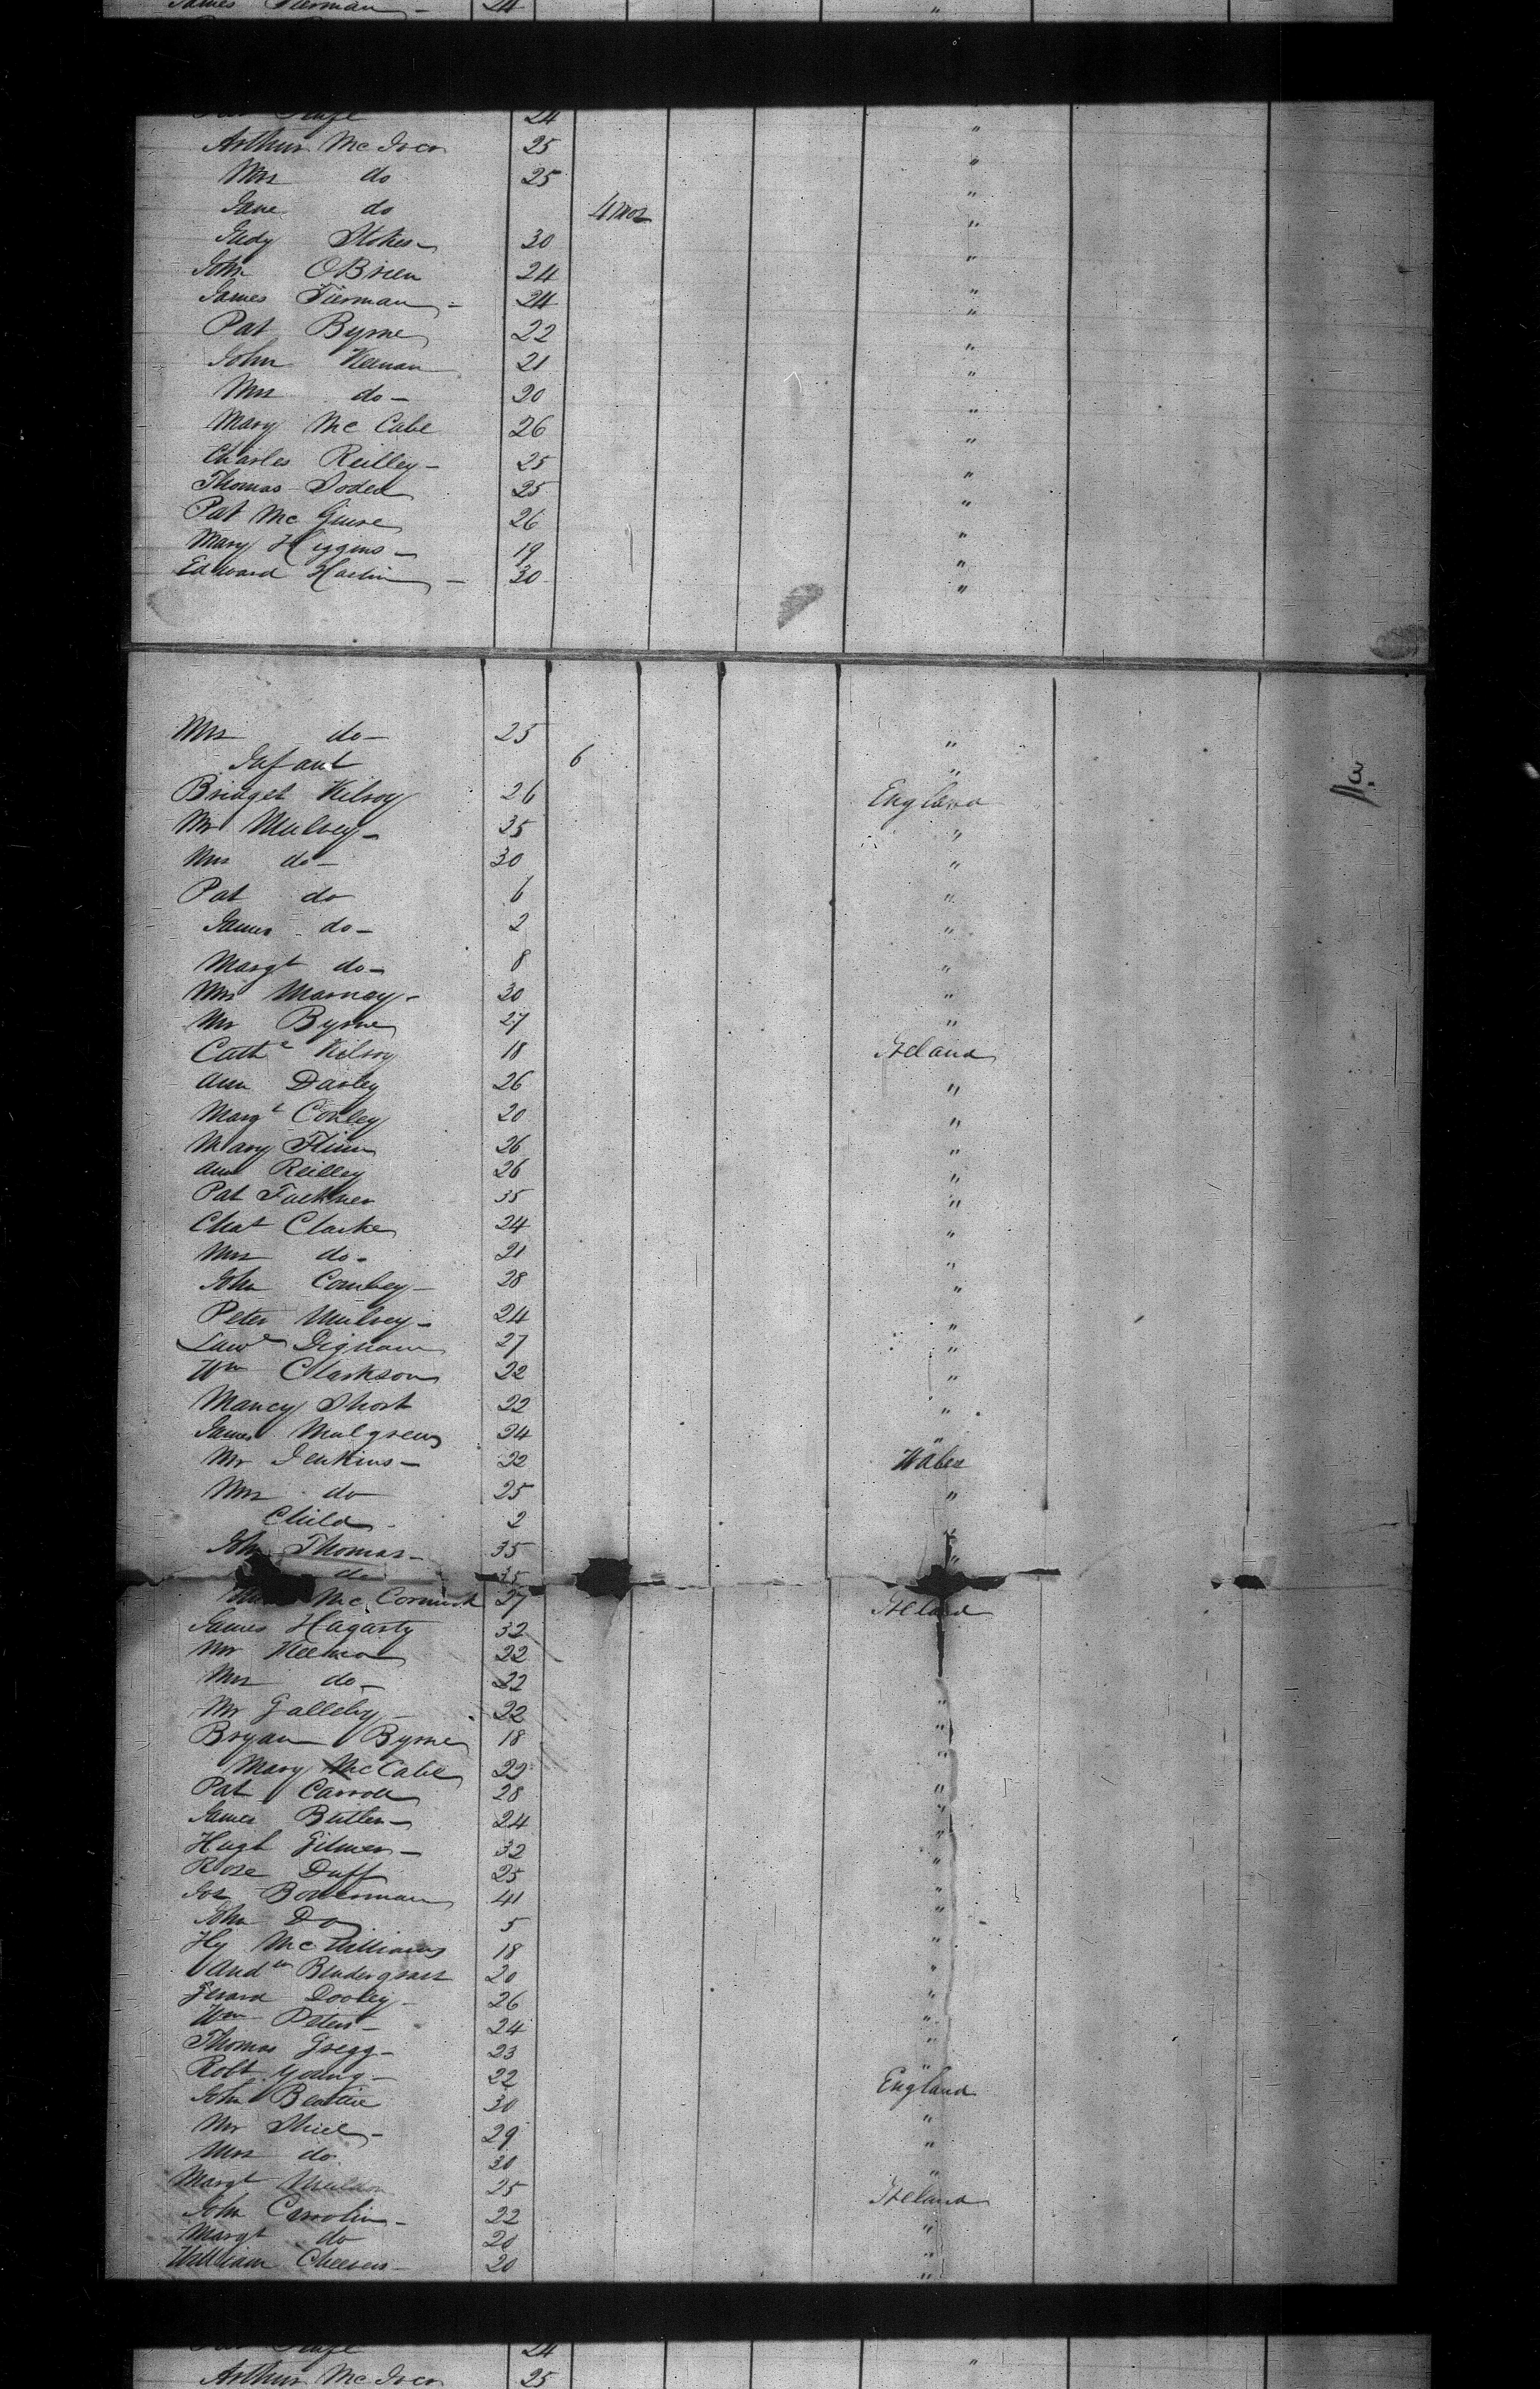 James Tierman - 24 "
24 "
Arthur Mc 25 "
Mrs do 25 "
Jane do 4 mos "
Judy Stokes 30 "
John OBrien 24 "
James Tierman - 24 "
Pat Byrne 22 "
John Keenan 21 "
Mrs do - 20 "
Mary Mc Cabe 26 "
Charles Reilley - 25 "
Thomas Soden 25 "
Pat Mc Guire 26 "
Mary Higgins - 19 "
Edward Harlin - 30 "
Mrs do - 25 "
Infant 6 "
Bridget Kilroy 26 England
Mr Mulvey - 35 "
Mrs do - 30 "
Pat do 6 "
James do - 2 "
Margt do - 8 "
Mrs Marnay - 30 "
Mr Byrne 27 "
Cathe Kilroy 18 Ireland
Ann Darley 26 "
Margt Conley 20 "
Mary Flinn 26 "
Ann Reilley 26 "
Pat Falkner 35 "
Chat Clarke 24 "
Mrs do - 21 "
John Combey - 28 "
Peter Mulvey - 24 "
Lawe Dignam 27 "
Wm Clarkson 22 "
Nancy Short 22 "
James Mulgrew 24 "
Mr Jenkins - 22 Wales
Mrs do 25 "
Child - 2 "
John Thomas - 35 "
do 35
Mc Cormick 27 Ireland
James Hagarty 32
Mr 22
Mrs do - 22 "
Mr Galleby - 22 "
Bryan Byrne 18 "
Mary McCabe 22 "
Pat Carroll 28 "
James Butler - 24 "
Hugh Gilmer - 32 "
Rose Duff 25 "
Jos Bowerman 41 "
John Do 5 "
Hy McWilliams 18 "
Andw Bendergrast 20 "
Gerard Dooley - 26 "
Wm Peters - 24 "
Thomas Gregg - 23 "
Robt Young - 22 England
John Beattie 30 "
Mr Shiel - 29 "
Mrs do 30 "
Margt Muldon 25 Ireland
John Carrolin - 22 "
Margt do 20 "
William Cheevers - 20 "
24
Arthur Mc 25 "